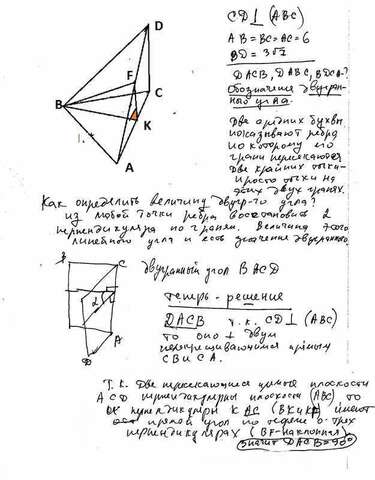 D
F
B
C
K
A
CD⊥(ABC)
AB=BC=AC=6
BD=3√2
DACB, DABC, BDCA-?
Обозначение двугран-
ного угла.
Две средних буквы
показывают ребро
по которому его
грани пересекаются
Две крайних точки-
просто точки на
этих двух гранях.
Как определить величину двугр-го угла?
из любой точки ребра восстановить 2
перпендикуляра по граням. Величина этого
линейного угла и есть значение двугранного.
B
C
A
D
двугранный угол BACD
теперь - решение
DACB т.к. CD⊥(ABC)
то оно ⊥ двум
пересекивающимся прямым
CB и CA.
Т.к. две пересекающиеся прямые плоскости
ACD перпендикулярны плоскости (ABC), то
перпендикуляры к AC (BK и KF) имеют
прямой угол по теореме о трех
перпендикулярах (BF-наклонная)
значит DACB=90°